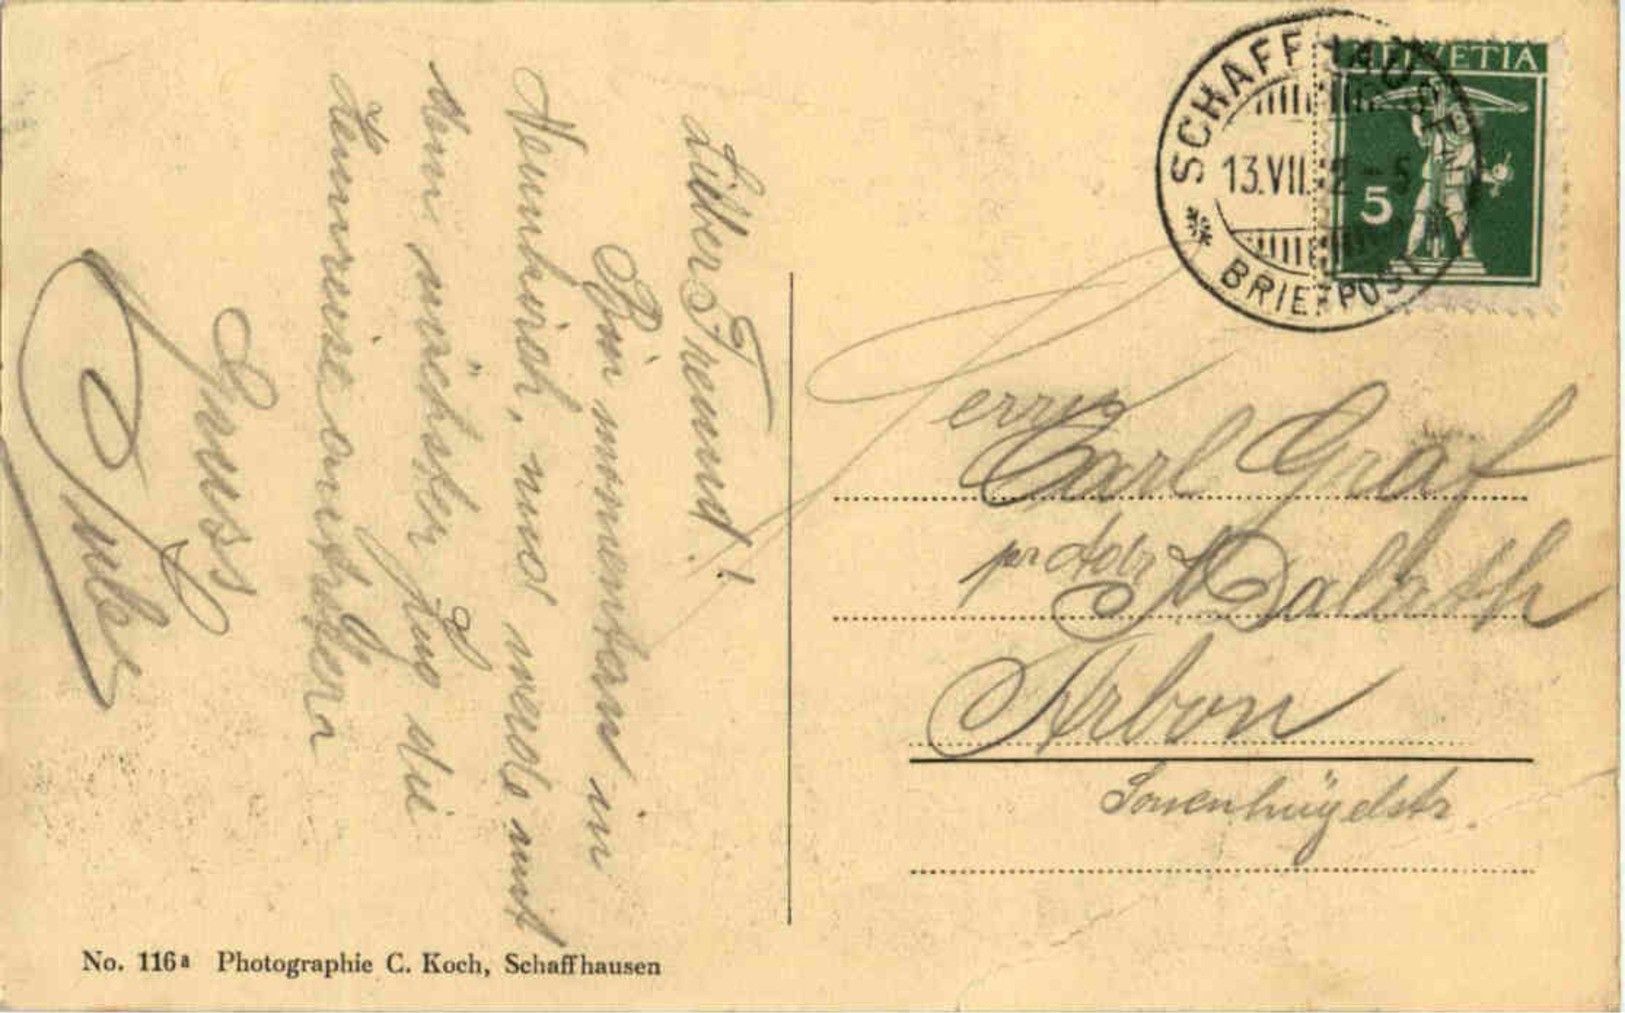 Lieber Freund!
Bin momentan in
Neunkirch, und werde mit
dem nächsten Zug die
Heimreise antreten
Gruss
HELVETIA
5
SCHAFFHAUSEN
13.VII. 2-5
BRIEFPOST
Herrn
Carl Graf
pr Adr
Arbon
Sonenhügelstr.
No. 116a Photographie C. Koch, Schaffhausen